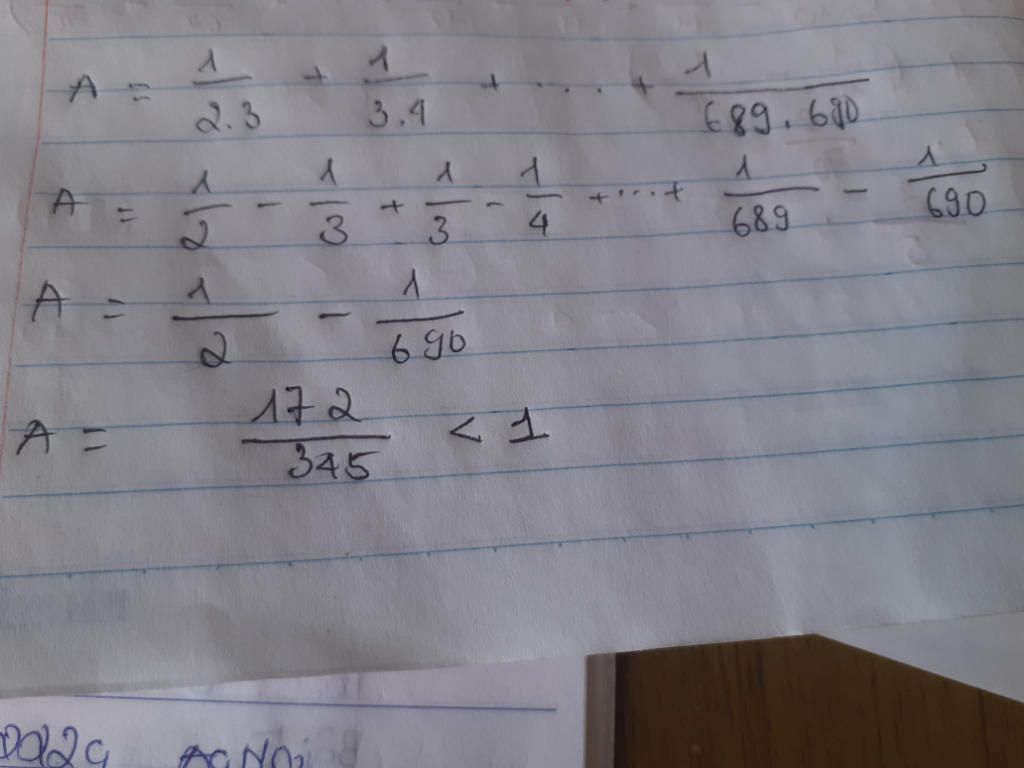 A = 1/2.3 + 1/3.4 + .... + 1/689.690
A = 1/2 - 1/3 + 1/3 - 1/4 + ... + 1/689 - 1/690
A = 1/2 - 1/690
A = 172/345 < 1